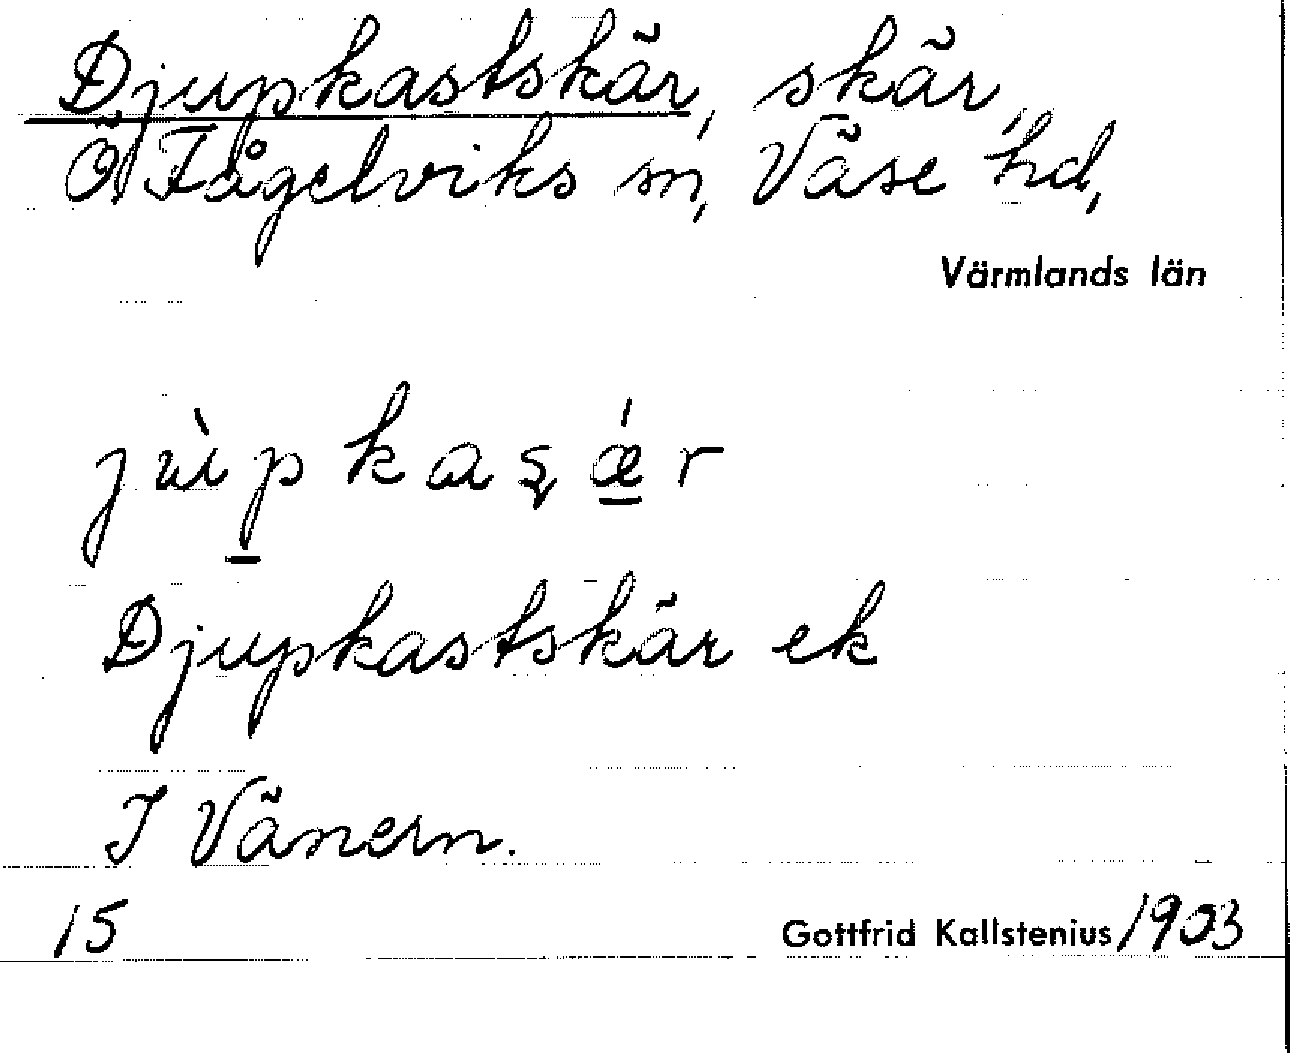 Djupkastskär, skär,
Ö Fågelviks sn, Väse hd,
Värmlands län
jùp̲kaʂǽ̲r
Djupkastskär ek
I Vänern.
15 Gottfrid Kallstenius/1903